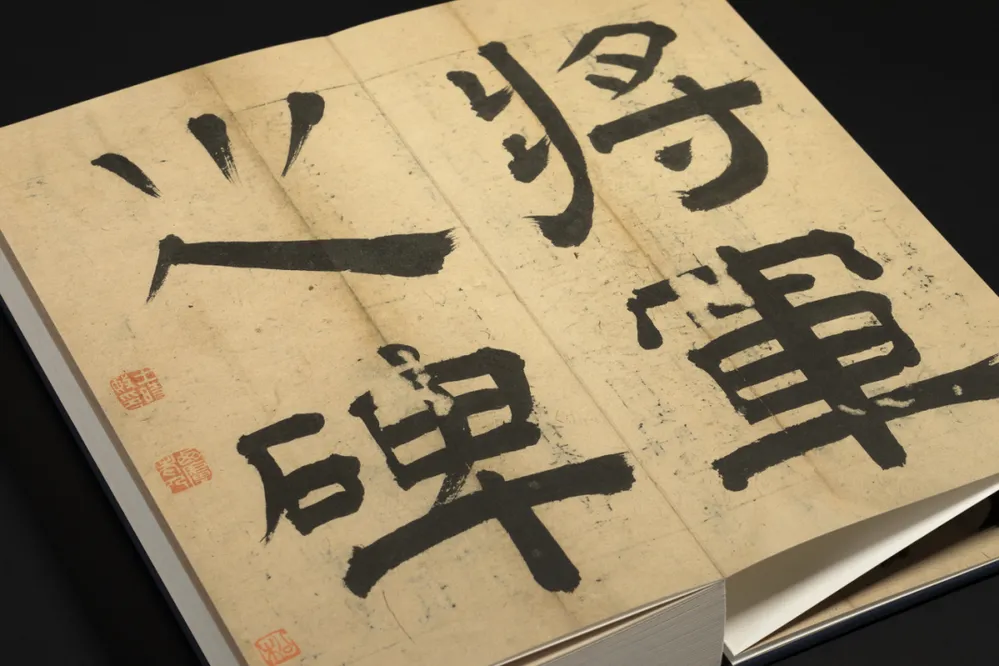 將軍
之碑